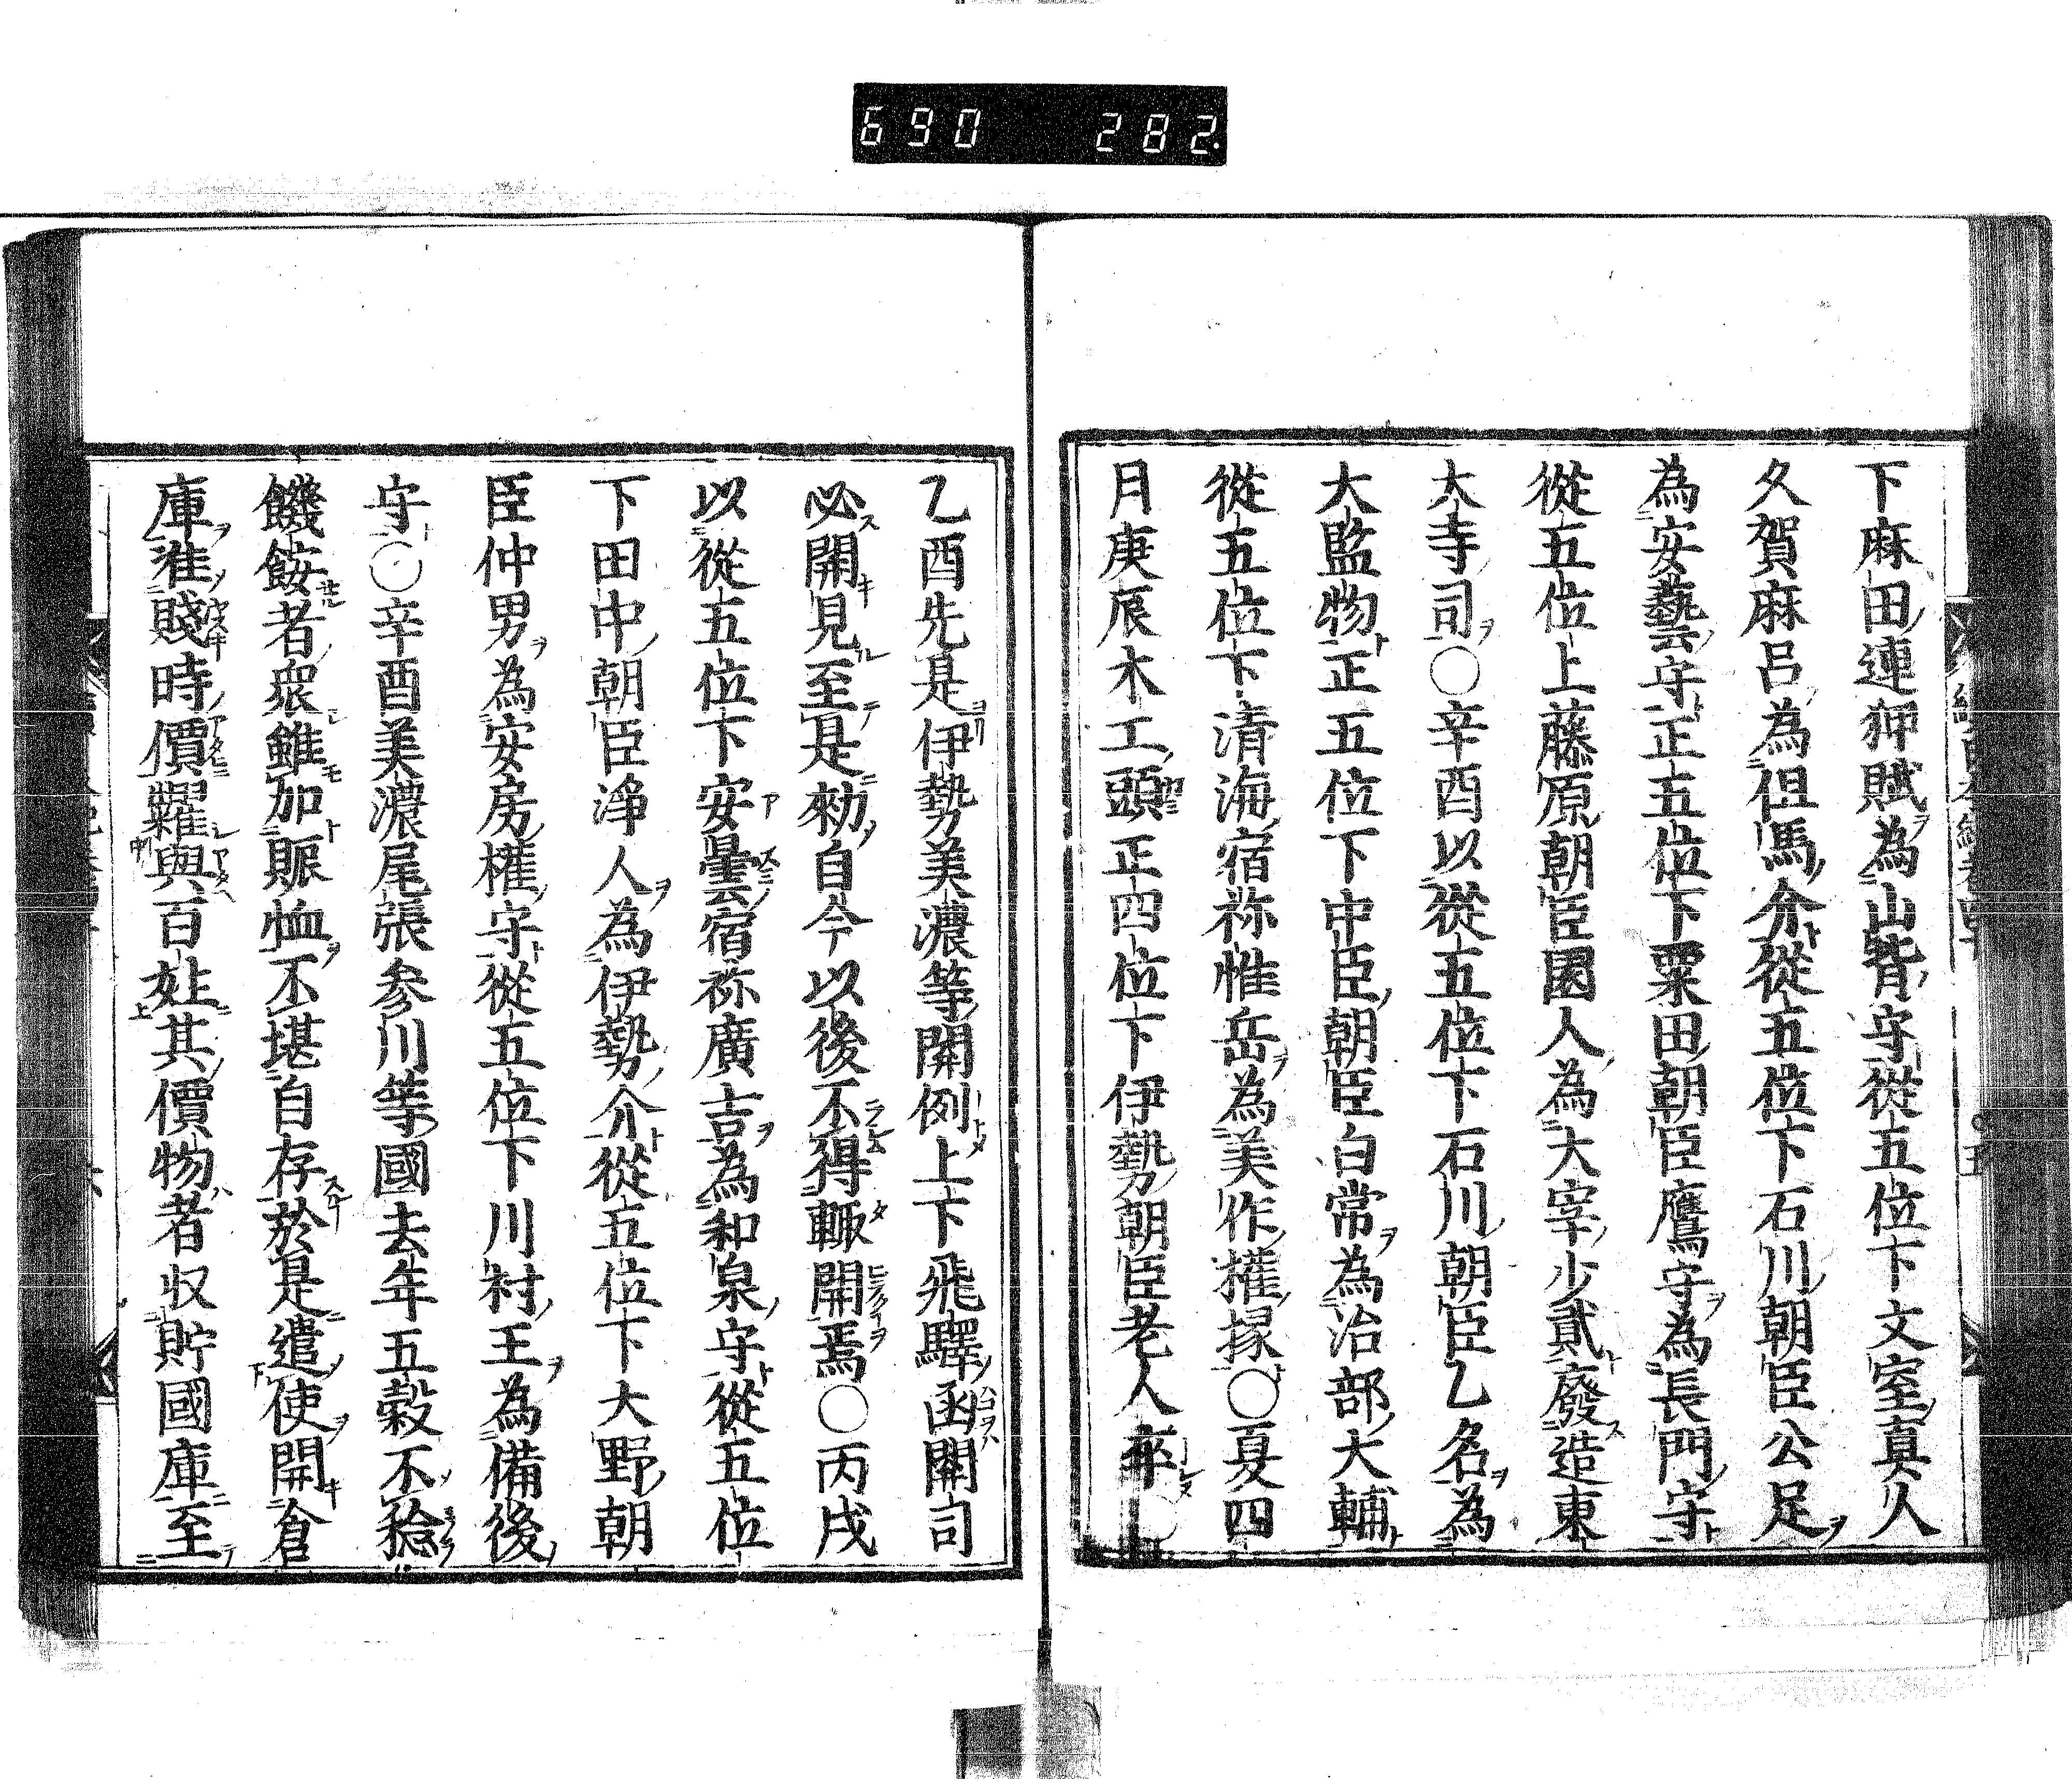 690 282
下麻田連狎賦為山背守從五位下文室真人
久賀麻呂為但馬介從五位下石川朝臣公足
為安藝守正五位下粟田朝臣鷹守為長門守
從五位上藤原朝臣園人為大宰少貳廢造東
大寺司○辛酉以從五位下石川朝臣乙名為
大監物正五位下中臣朝臣常為治部大輔
從五位下清海宿祢惟岳為美作權掾○夏四
月庚辰木工頭正四位下伊勢朝臣老人卒○
乙酉先是伊勢美濃等關例上下飛驛函關司
必開見至是勑自今以後不得輙開焉○丙戌
以從五位下安曇宿祢廣吉為和泉守從五位
下田中朝臣淨人為伊勢介從五位下大野朝
臣仲男為安房權守從五位下川村王為備後
守○辛酉美濃尾張参川等國去年五穀不稔
饑餒者衆雖加賑恤不堪自存於是遣使開倉
庫准賤時價糶與百姓其價物者収貯國庫至